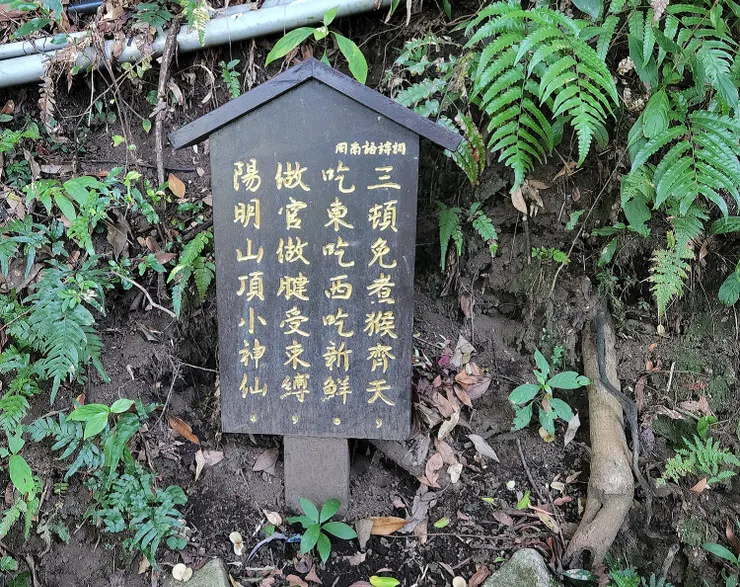 三頓免煮猴齊天
吃東吃西吃新鮮
做官做腱受束縛
陽明山頂小神仙